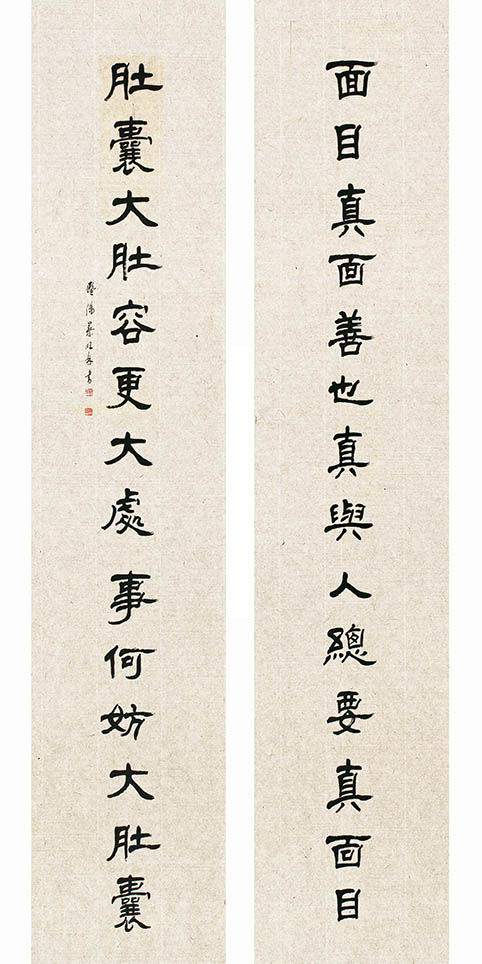 面目真面善也真與人總要真面目
肚囊大肚容更大處事何妨大肚囊